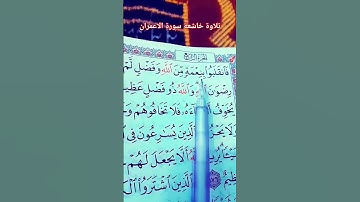 تلاوة خاشعه سورة الاعمران
فَٱنقَلَبُوا۟ بِنِعْمَةٍ مِّنَ ٱللَّهِ وَفَضْلٍ لَّمْ
رِضْوَٰنَ وَٱللَّهُ ذُو فَضْلٍ عَظِيمٍ
يُخَوِّفُ فَلَا تَخَافُوهُمْ
ٱلَّذِينَ يُسَٰرِعُونَ فِى
أَلَّا يَجْعَلَ لَهُمْ
ٱلَّذِينَ ٱشْتَرَوُا۟